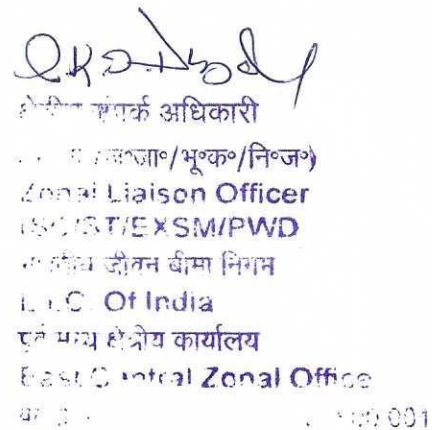 संपर्क अधिकारी
ज॰जा॰/भू॰क॰/नि॰ज॰)
Zonal Liaison Officer
(SC/ST/EXSM/PWD
भारतीय जीवन बीमा निगम
L.I.C. Of India
पूर्व मध्य क्षेत्रीय कार्यालय
East Central Zonal Office
001